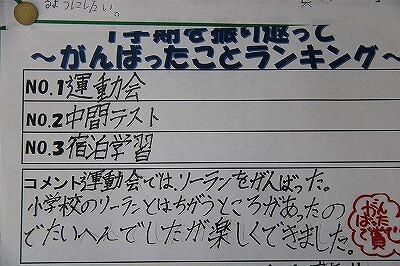 るようにしたい。
1学期を振り返って
～がんばったことランキング～
NO.1運動会
NO.2中間テスト
NO.3宿泊学習
コメント運動会では、ソーランをがんばった。
小学校のソーランとはちがうところがあったの
でたいへんでしたが楽しくできました。
がん
ばった
賞